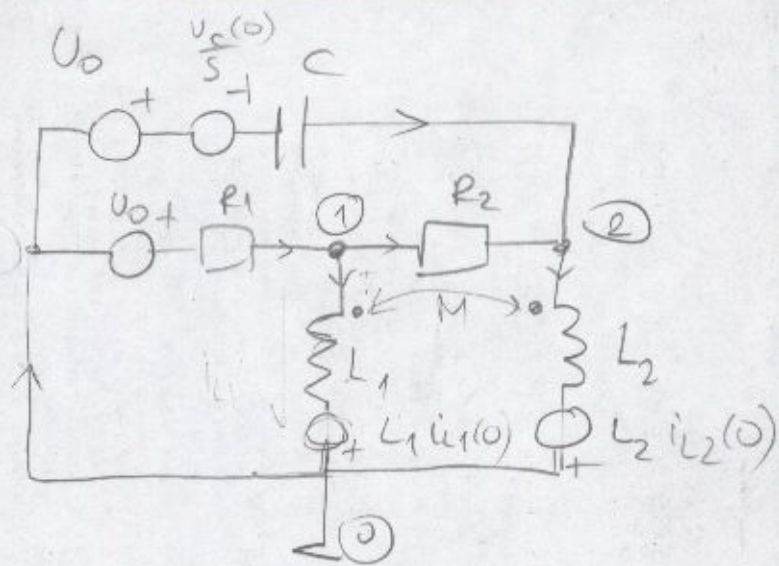 U₀ u_c(0)/s C
+ +
U₀ + R1 ① R2 ②
M
L₁ L₂
i_L1
+ L₁ i_L1(0) L₂ i_L2(0)
+
⓪